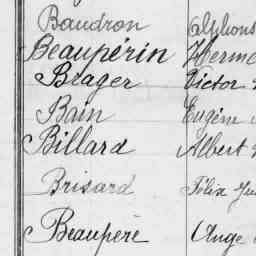 Baudron Alphons
Beaupérin Herme
Brager Victor
Bain Eugène
Billard Albert
Brisard Félix Ju
Beauperé Ange